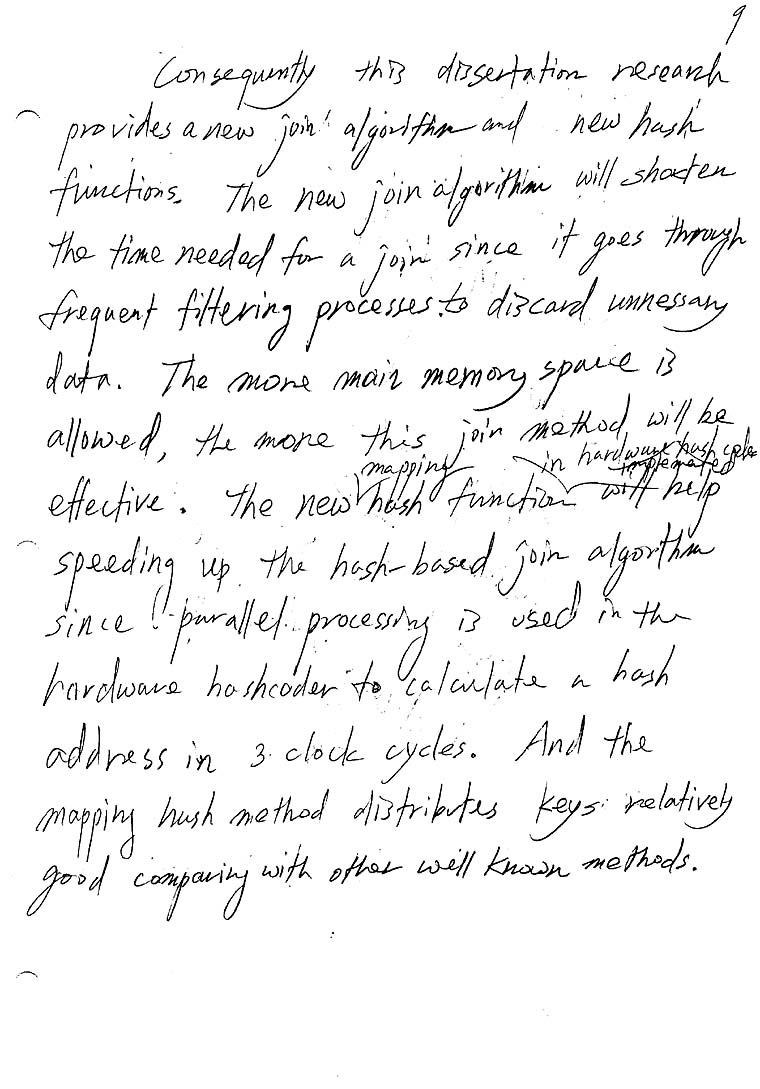 9
Consequently this dissertation research
provides a new join algorithm and new hash
functions. The new join algorithm will shorten
the time needed for a join since it goes through
frequent filtering processes to discard unnessary
data. The more main memory space is
allowed, the more this join method will be
mapping in hardware hash coder
implemented
effective. The new hash function will help
speeding up the hash-based join algorthm
since parallel processing is used in the
hardware hashcoder to calculate a hash
address in 3 clock cycles. And the
mapping hash method distributes keys relatively
good comparing with other well known methods.